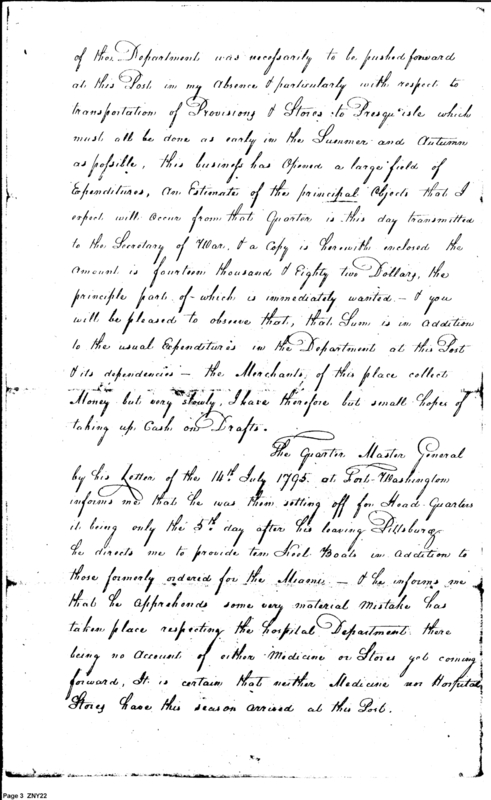 of the Department was necessarily to be pushed forward
at this Post in my absence & particularly with respect to
transportation of Provisions & Stores to Presqu'isle which
must all be done as early in the Summer and Autumn
as possible, this business has opened a large field of
Expenditures, an Estimate of the principal Objects that I
expect will occur from that Quarter is this day transmitted
to the Secretary of War, & a Copy is herewith enclosed the
amount is fourteen thousand & Eighty two Dollars, the
principle part of which is immediately wanted – & you
will be pleased to observe that, that Sum is in addition
to the usual Expenditures in the Department at this Post
& its dependencies – the Merchants, of this place collect
Money but very slowly, I have therefore but small hopes of
taking up Cash on Drafts.
The Quarter Master General
by his Letter of the 14th July 1795. at Fort Washington
informs me that he was then setting off for Head Quarters
it being only the 5th day after his leaving Pittsburg
he directs me to provide ten Keel Boats in addition to
those formerly ordered for the Miamie – & he informs me
that he apprehends some very material mistake has
taken place respecting the hospital Department there
being no account of either Medicine or Stores yet coming
forward, It is certain that neither Medicine nor Hospital
Stores have this season arrived at this Post.
Page 3 ZNY22